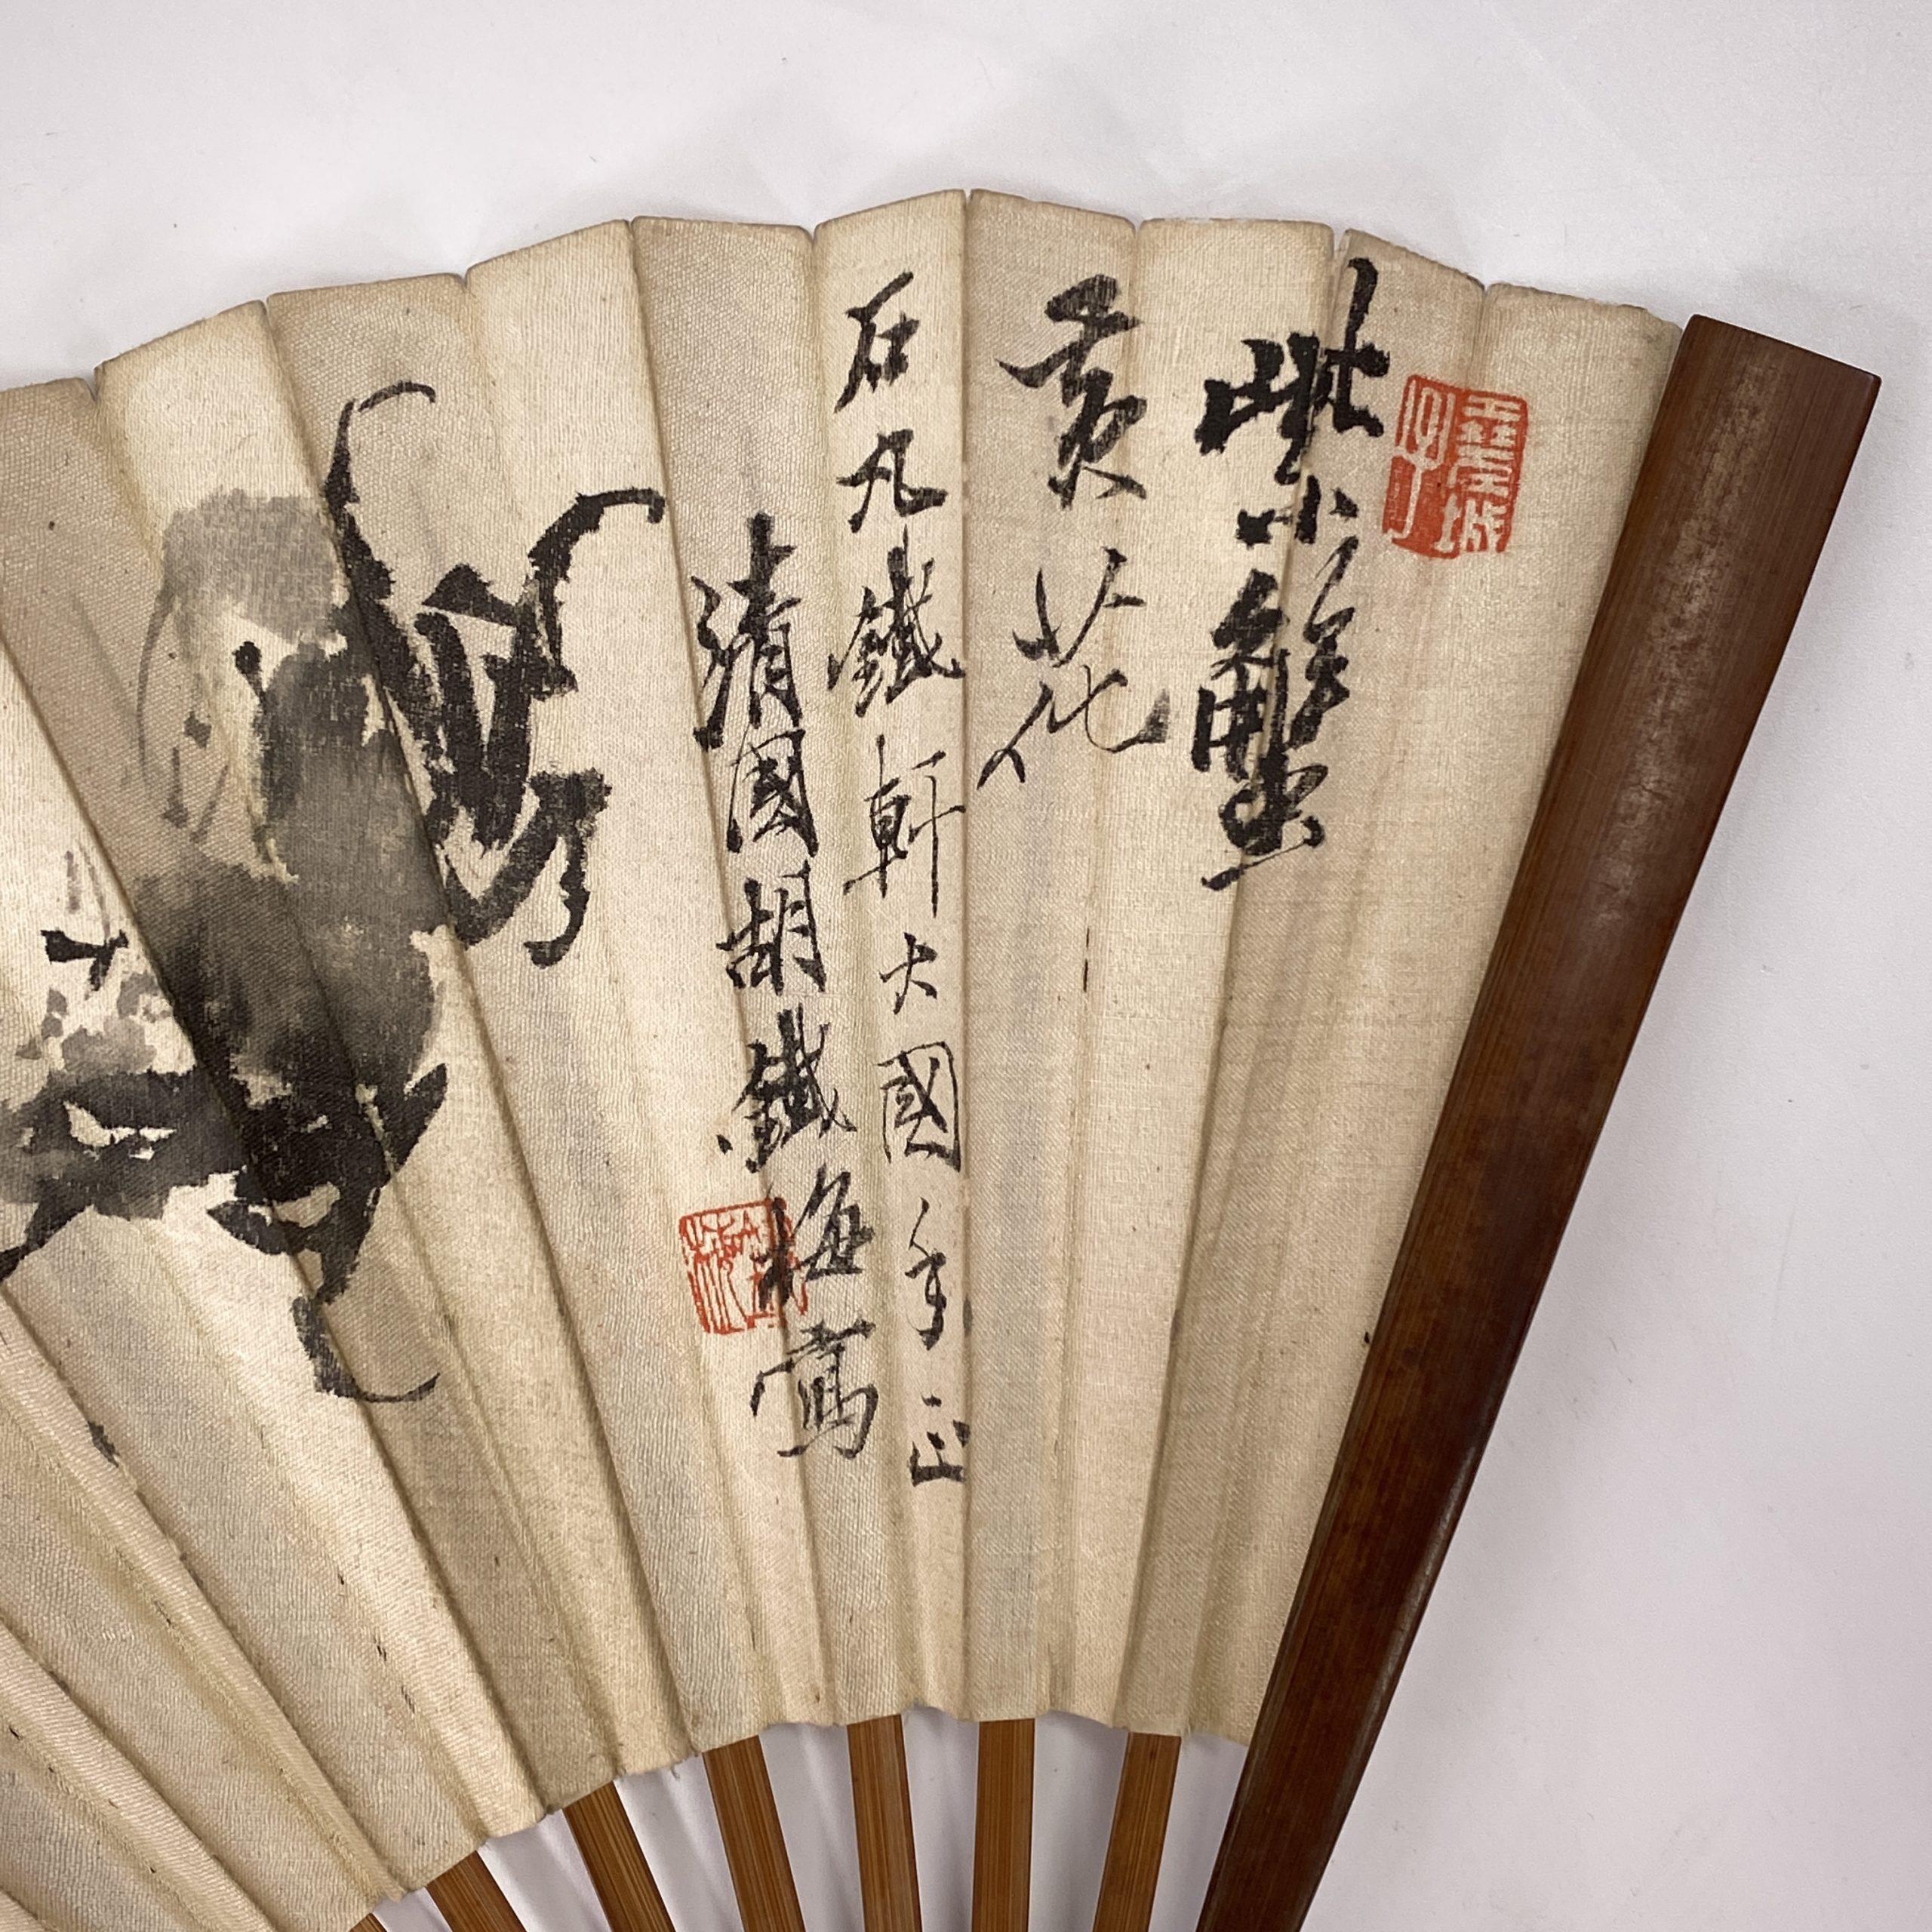 紫蟹
黄花
石凡鐵軒大國手正
清國胡鐵梅寫